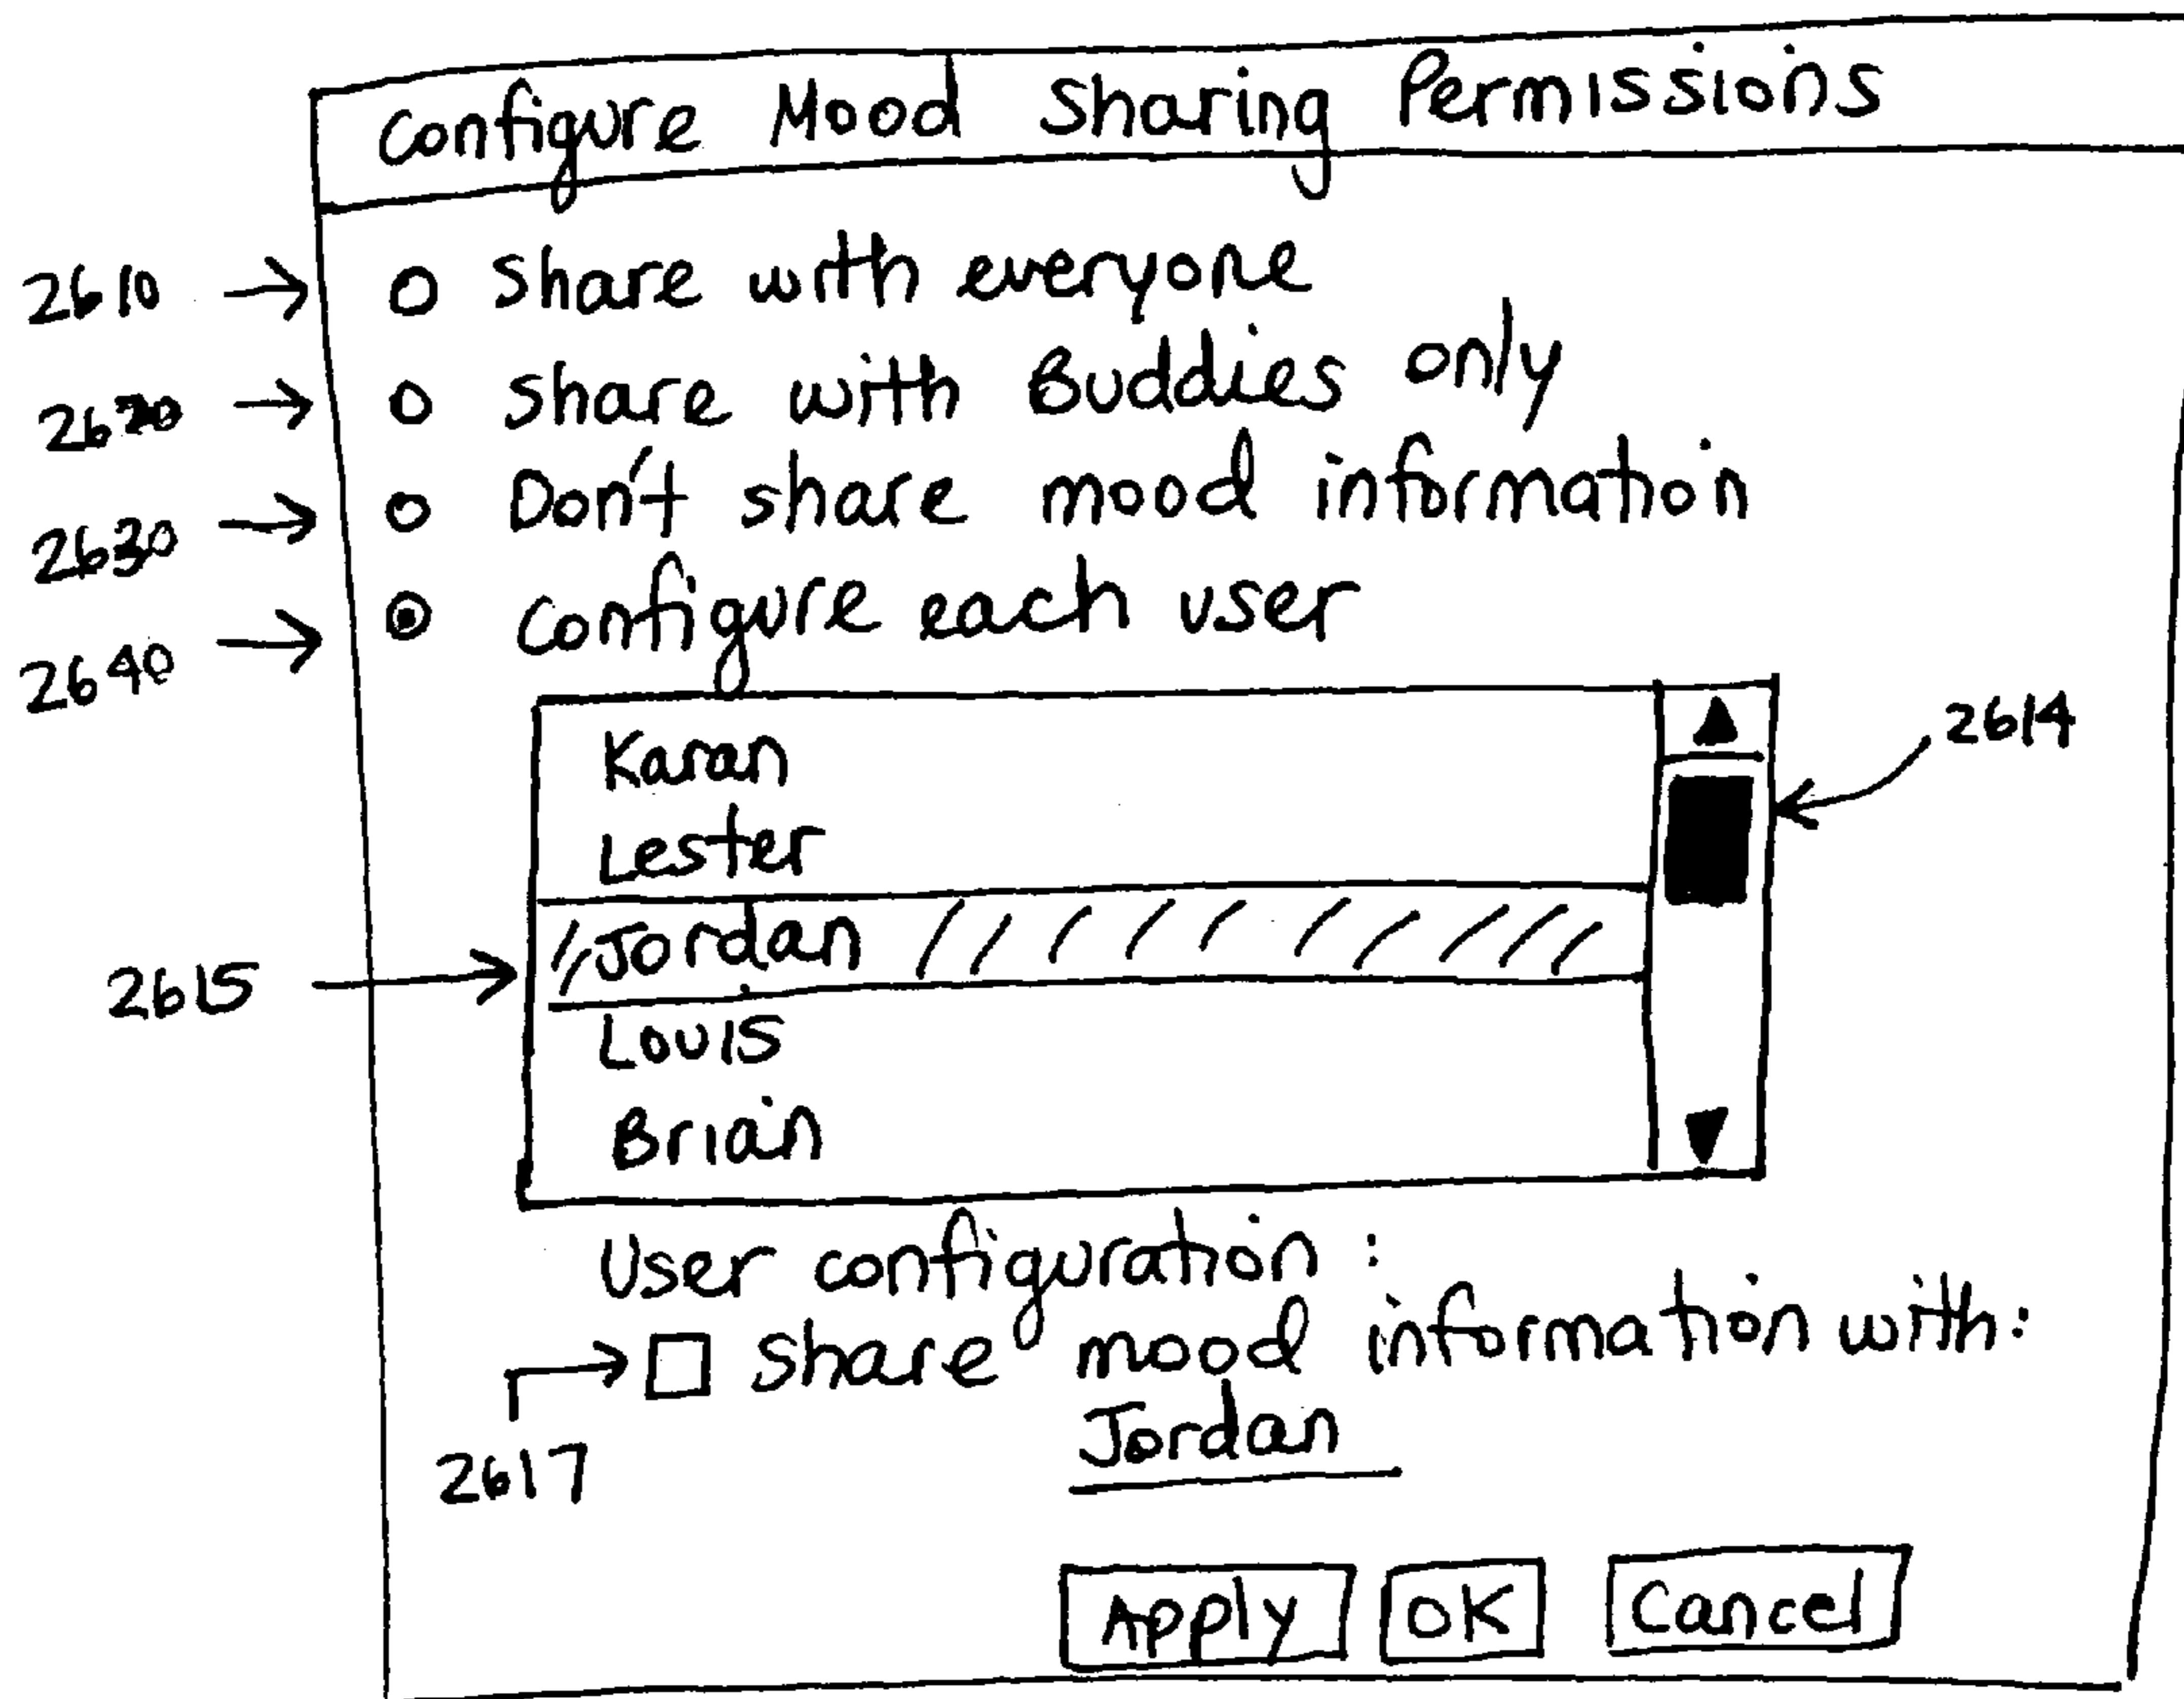 Configure Mood Sharing Permissions
2610 Share with everyone
2620 Share with Buddies only
2630 Don't share mood information
2640 Configure each user
2614
Karan
Lester
2615 Jordan
Louis
Brian
User configuration :
Share mood information with:
2617 Jordan
Apply OK Cancel